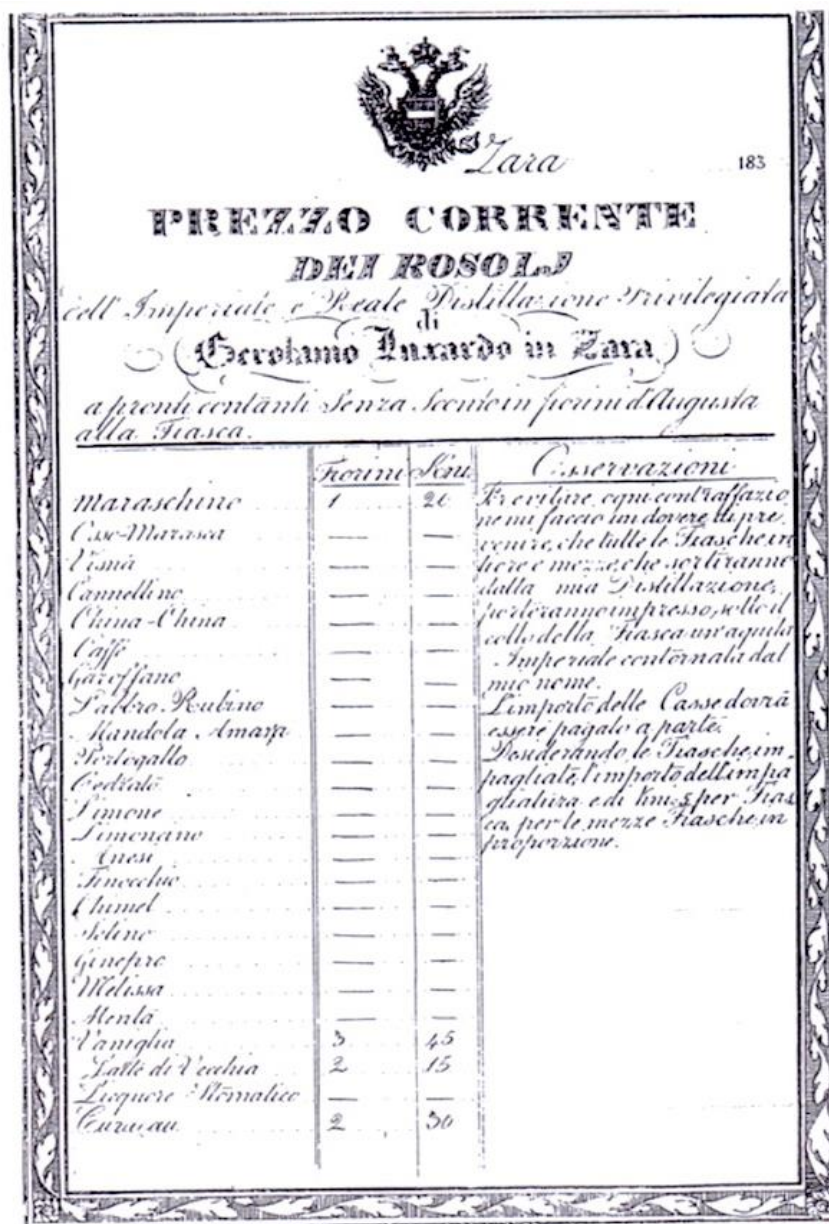 Zara 183
PREZZO CORRENTE
DEI ROSOLJ
dell' Imperiale e Reale Distillazione Privilegiata
di
Gerolamo Luxardo in Zara
a pronti contanti Senza Sconto in fiorini d'Augusta
alla Fiasca.
Fiorini Kni
Maraschino 1 20
Osso-Marasca — —
Visnà — —
Cannellino — —
China-China — —
Caffè — —
Garoffano — —
Labbro Rubino — —
Mandola Amara — —
Portogallo — —
Cedrato — —
Limone — —
Limonano — —
Anesi — —
Finocchio — —
Chimel — —
Selino — —
Ginepro — —
Melissa — —
Menta — —
Vaniglia 3 45
Latte di Vecchia 2 15
Licquore Stomatico — —
Curacau 2 30
Osservazioni
Per evitare ogni contraffazio
ne mi faccio un dovere di pre
venire, che tutte le Fiasche, in
tiere e mezze, che sortiranno
dalla mia Distillazione,
porteranno impresso, sotto il
collo della Fiasca un'aquila
Imperiale contornata dal
mio nome.
L'importo delle Casse dovrà
essere pagato a parte.
Desiderando le Fiasche im-
pagliate, l'importo dell'impa
gliatura e di kni 5 per Fias
ca, per le mezze Fiasche in
proporzione.